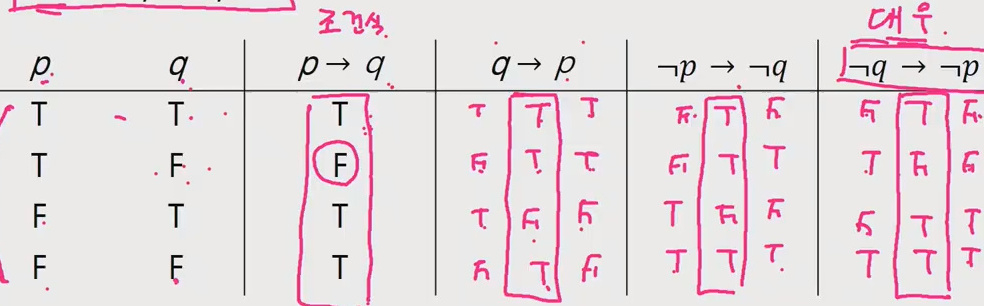 조건식 대우
p q p → q q → p ¬p → ¬q ¬q → ¬p
T T T T T T F T F F T F
T F F F T T F T T T F F
F T T T F F T F F F T T
F F T F T F T T T T T T